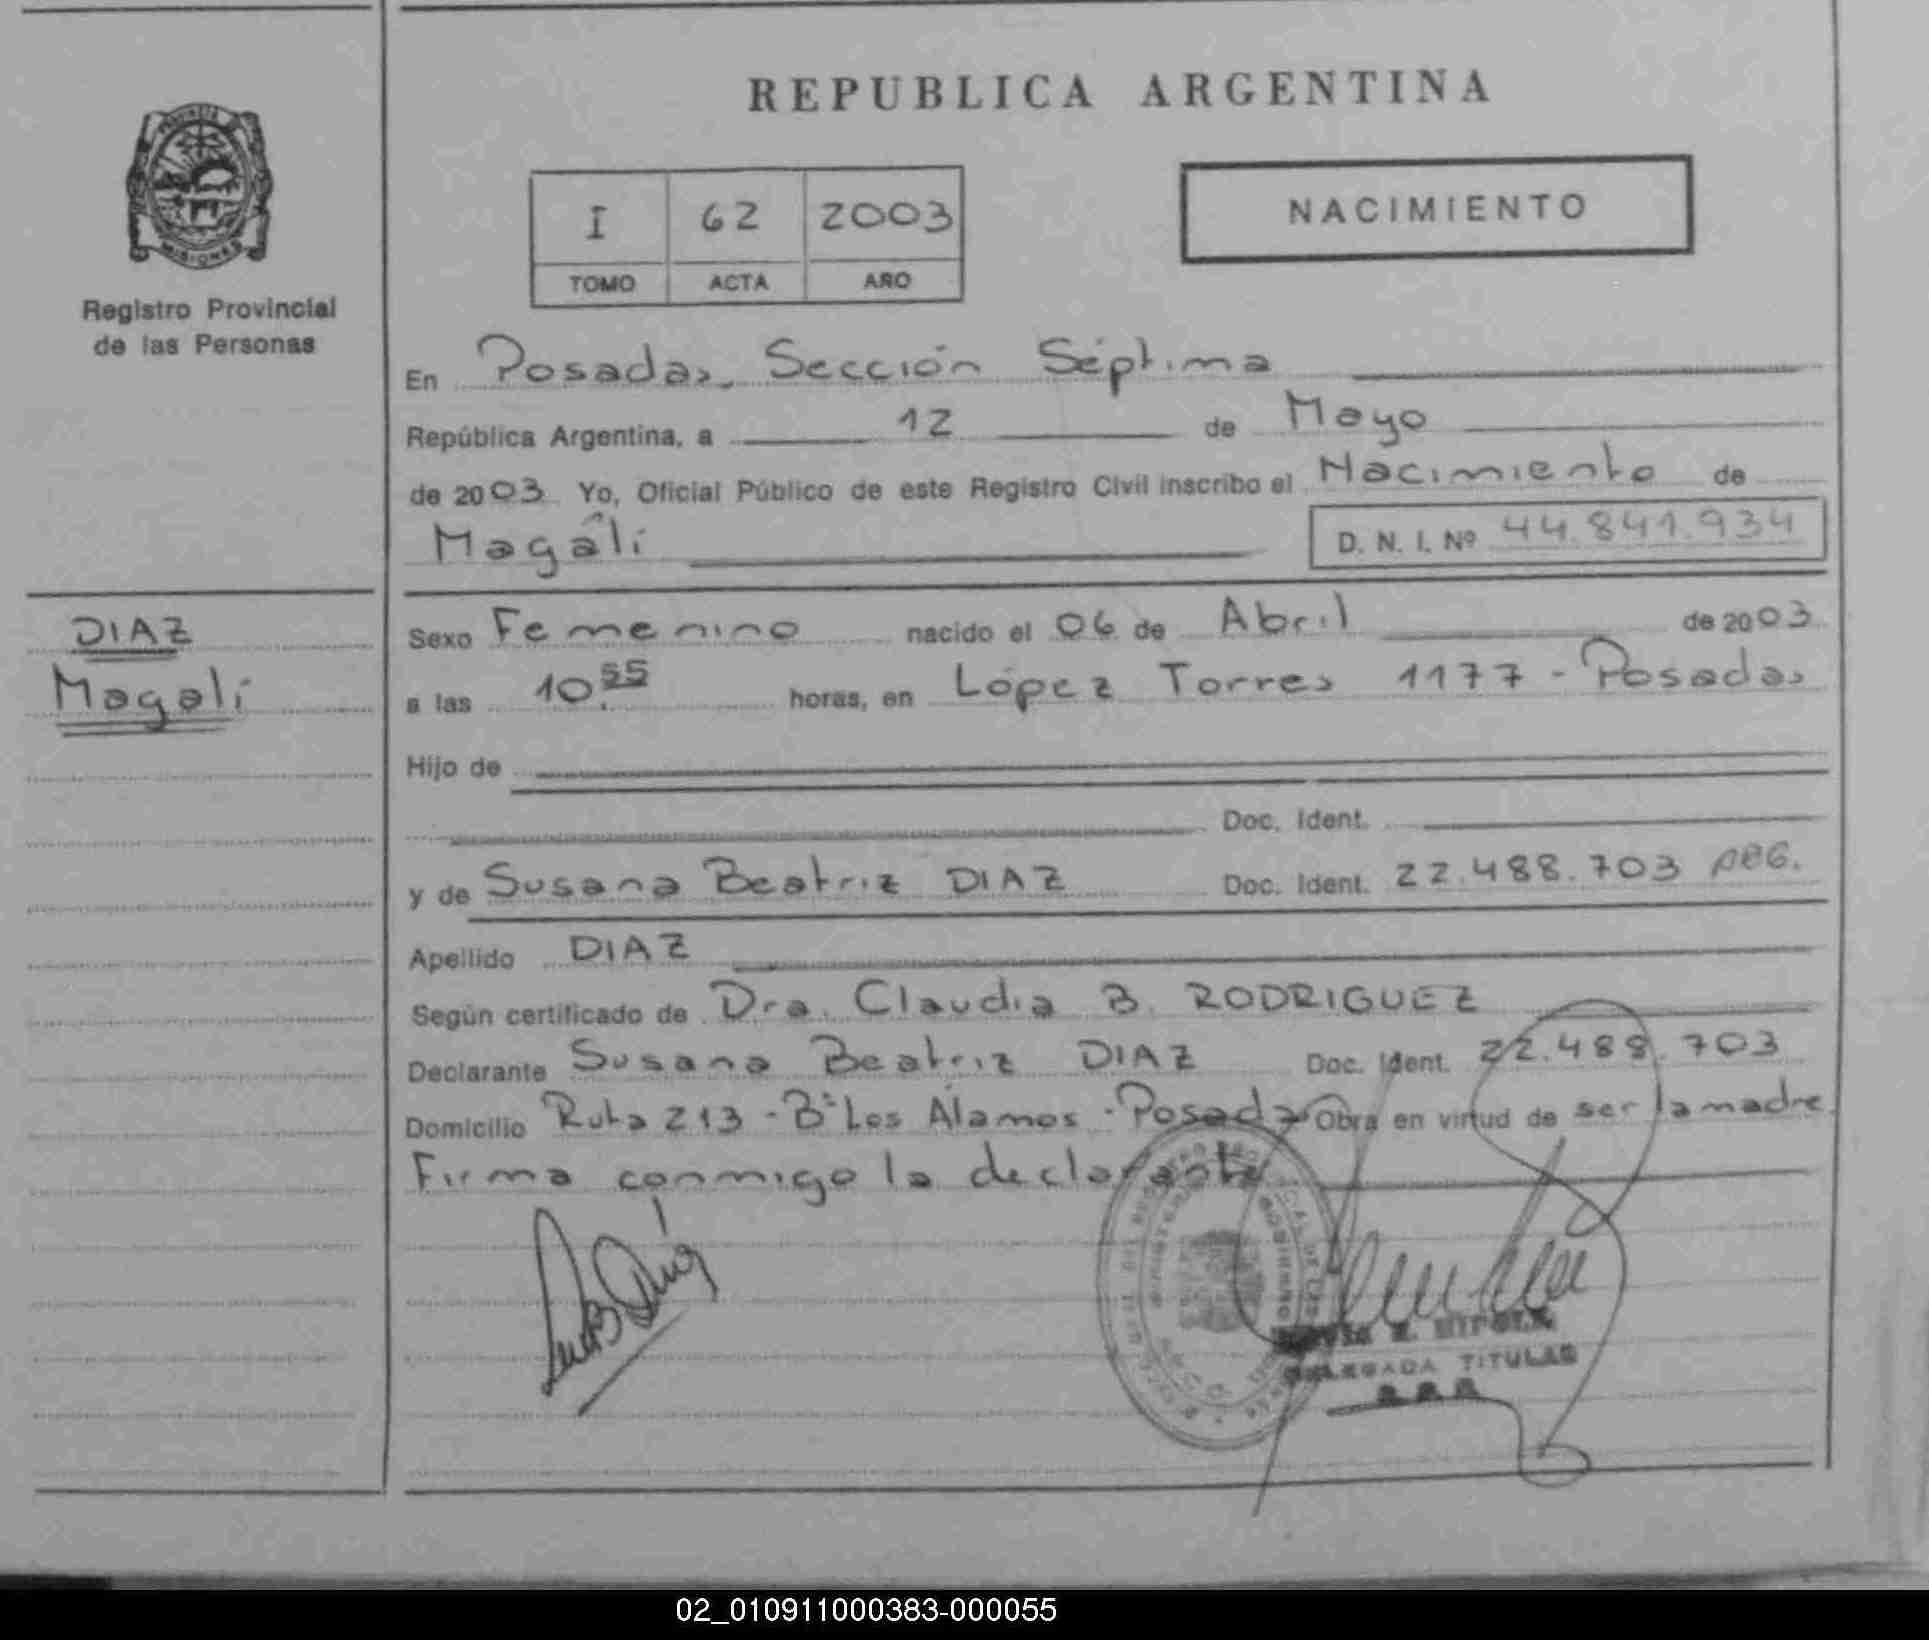 REPUBLICA ARGENTINA
PROVINCIA
MISIONES
Registro Provincial
de las Personas
I 62 2003
TOMO ACTA AÑO
NACIMIENTO
En Posadas, Sección Séptima
República Argentina, a 12 de Mayo
de 2003 Yo, Oficial Público de este Registro Civil inscribo el Nacimiento de
Magalí
D. N. I. Nº 44.841.934
DIAZ
Magalí
Sexo Femenino nacido el 06 de Abril de 2003
a las 10.55 horas, en López Torres 1177 - Posadas
Hijo de
Doc. Ident.
y de Susana Beatriz DIAZ Doc. Ident. 22.488.703 ARG.
Apellido DIAZ
Según certificado de Dra. Claudia B. RODRIGUEZ
Declarante Susana Beatriz DIAZ Doc. Ident. 22.488.703
Domicilio Ruta 213 - Bº Los Álamos - Posadas Obra en virtud de ser la madre.
Firma conmigo la declarante
DELEGADA TITULAR
02_010911000383-000055